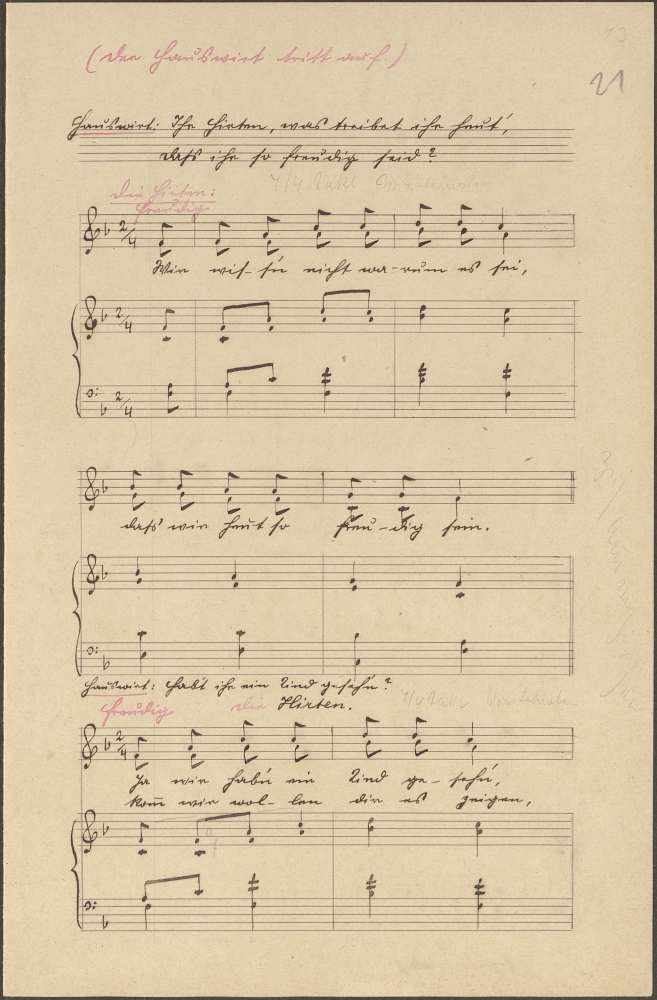 13
21
(Der Hauswirt tritt auf.)
Hauswirt: Ihr Hirten, was treibet ihr heut',
daß ihr so freudig seid?
Die Hirten:
freudig
2/4
Wir wis-sen nicht wa-rum es sei,
2/4
2/4
daß wir heut so freu-dig sein.
Hauswirt: Habt ihr ein Kind gesehn?
freudig die Hirten.
2/4
Ja wir habn ein Kind ge-sehn,
Kom̅ wir wol-len dir es zeigen,